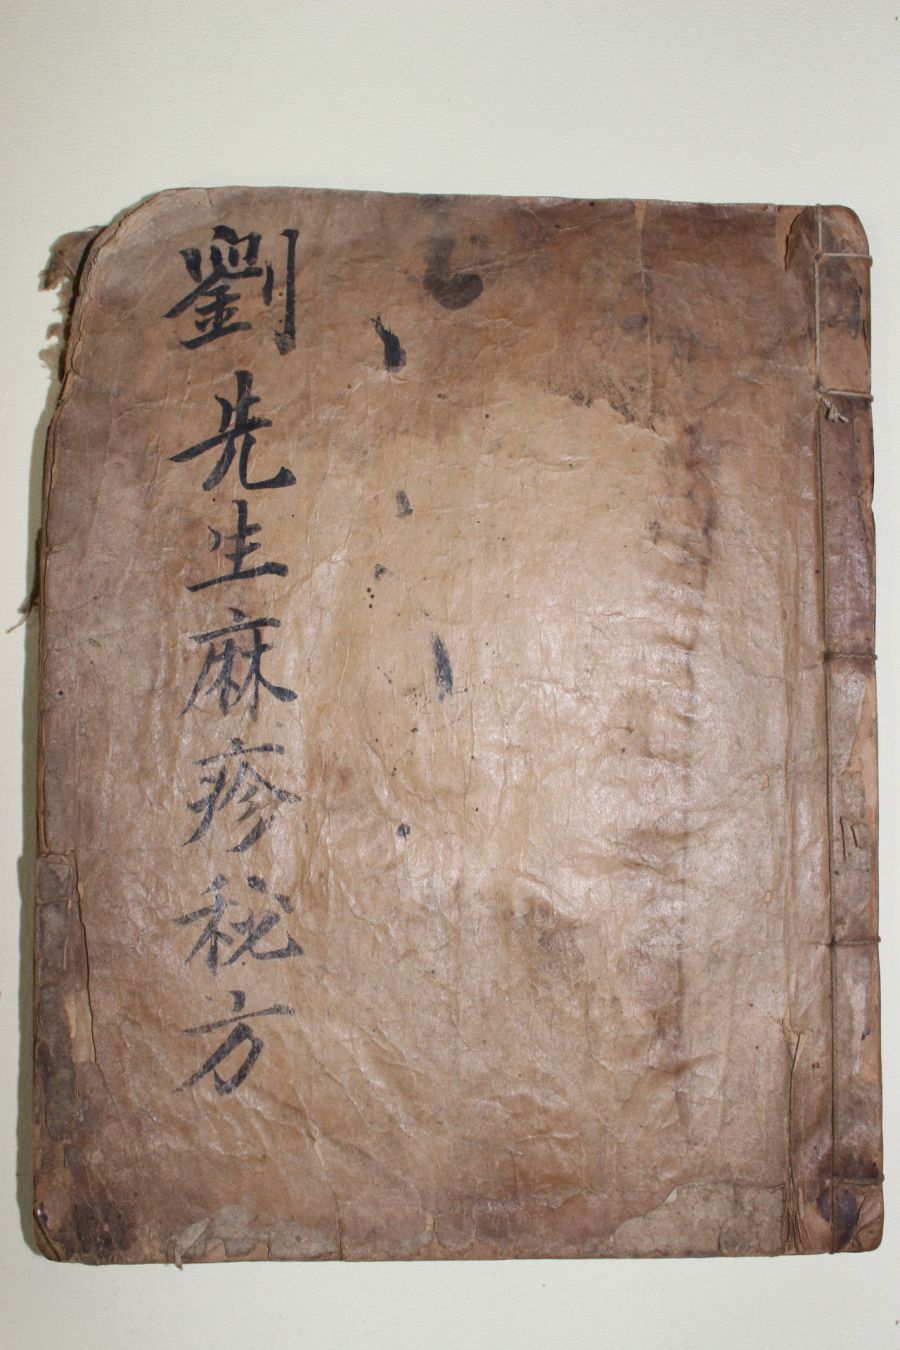 劉先生麻疹秘方